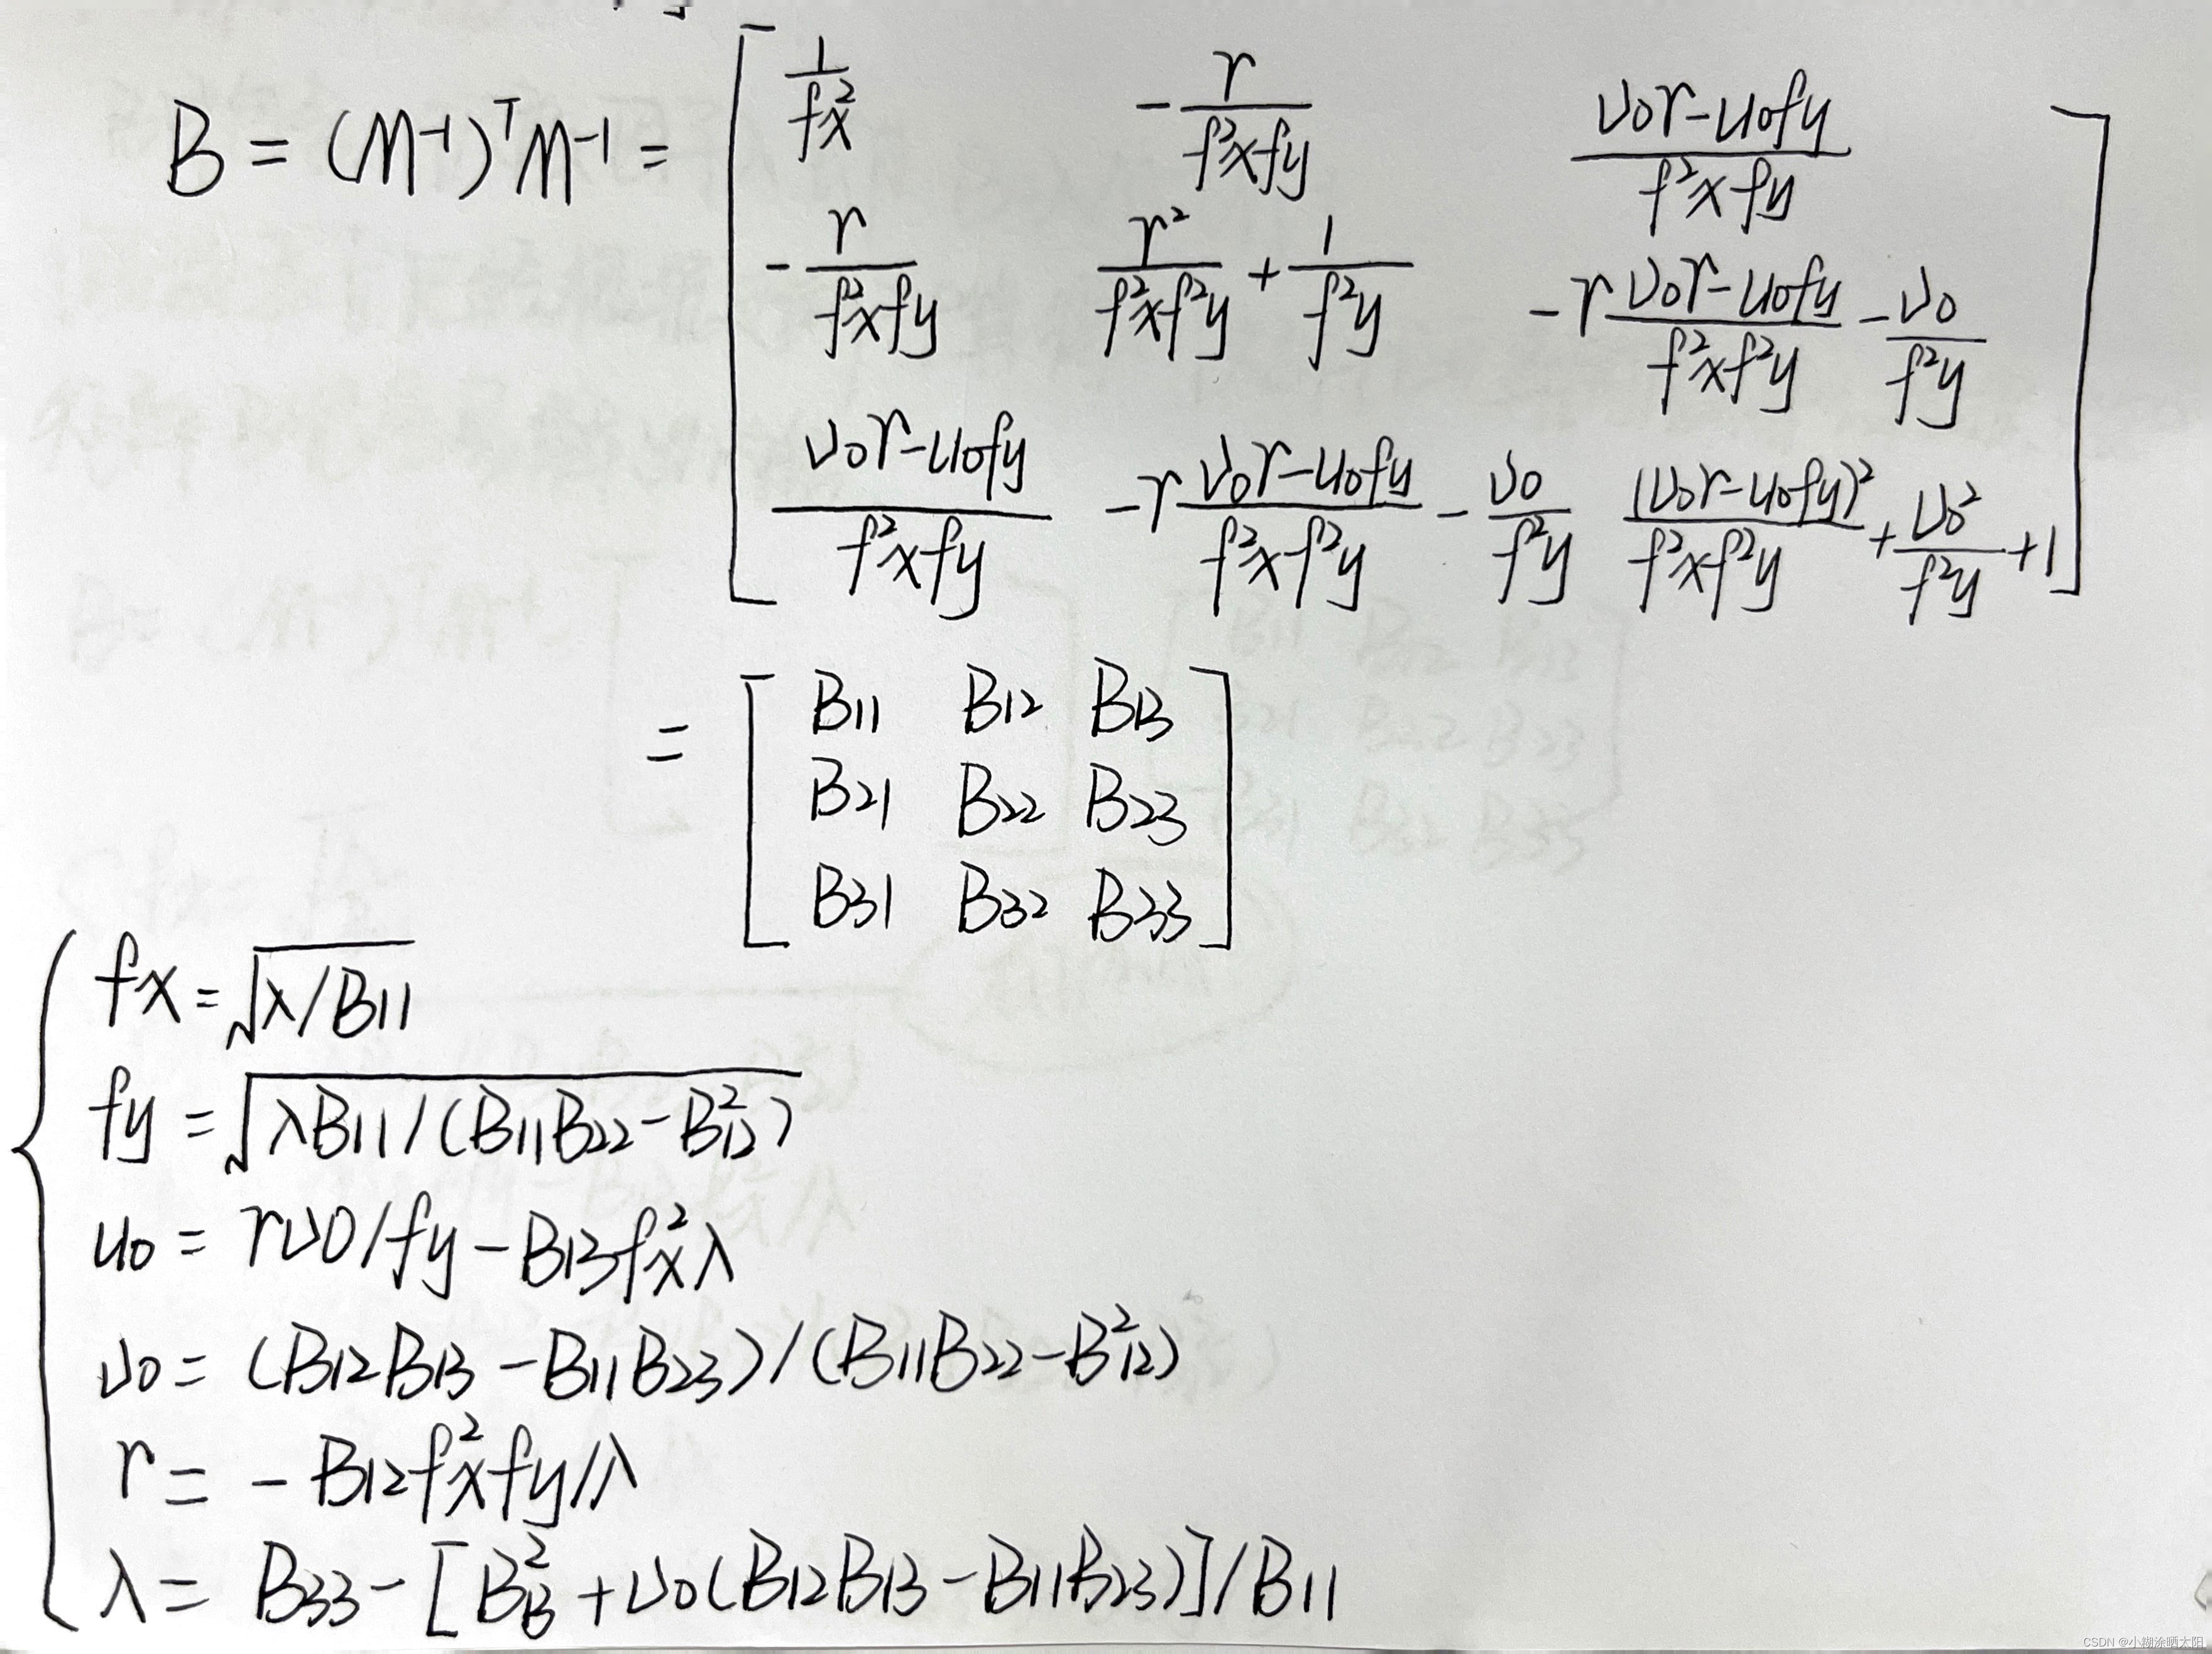 B = (M⁻¹)ᵀM⁻¹ = [ 1/fx²   -r/(f²xfy)   (v0r-u0fy)/(f²xfy)
-r/(f²xfy)   r²/(f²xf²y) + 1/f²y   -r(v0r-u0fy)/(f²xf²y) - v0/f²y
(v0r-u0fy)/(f²xfy)   -r(v0r-u0fy)/(f²xf²y) - v0/f²y   (v0r-u0fy)²/(f²xf²y) + v0²/f²y + 1 ]
= [ B11 B12 B13
B21 B22 B23
B31 B32 B33 ]
fx = √(λ/B11)
fy = √(λB11/(B11B22-B12²))
u0 = rv0/fy - B13fx²λ
v0 = (B12B13 - B11B23)/(B11B22-B12²)
r = -B12fx²fy/λ
λ = B33 - [B13² + v0(B12B13 - B11B23)]/B11
CSDN @小糊涂晒太阳